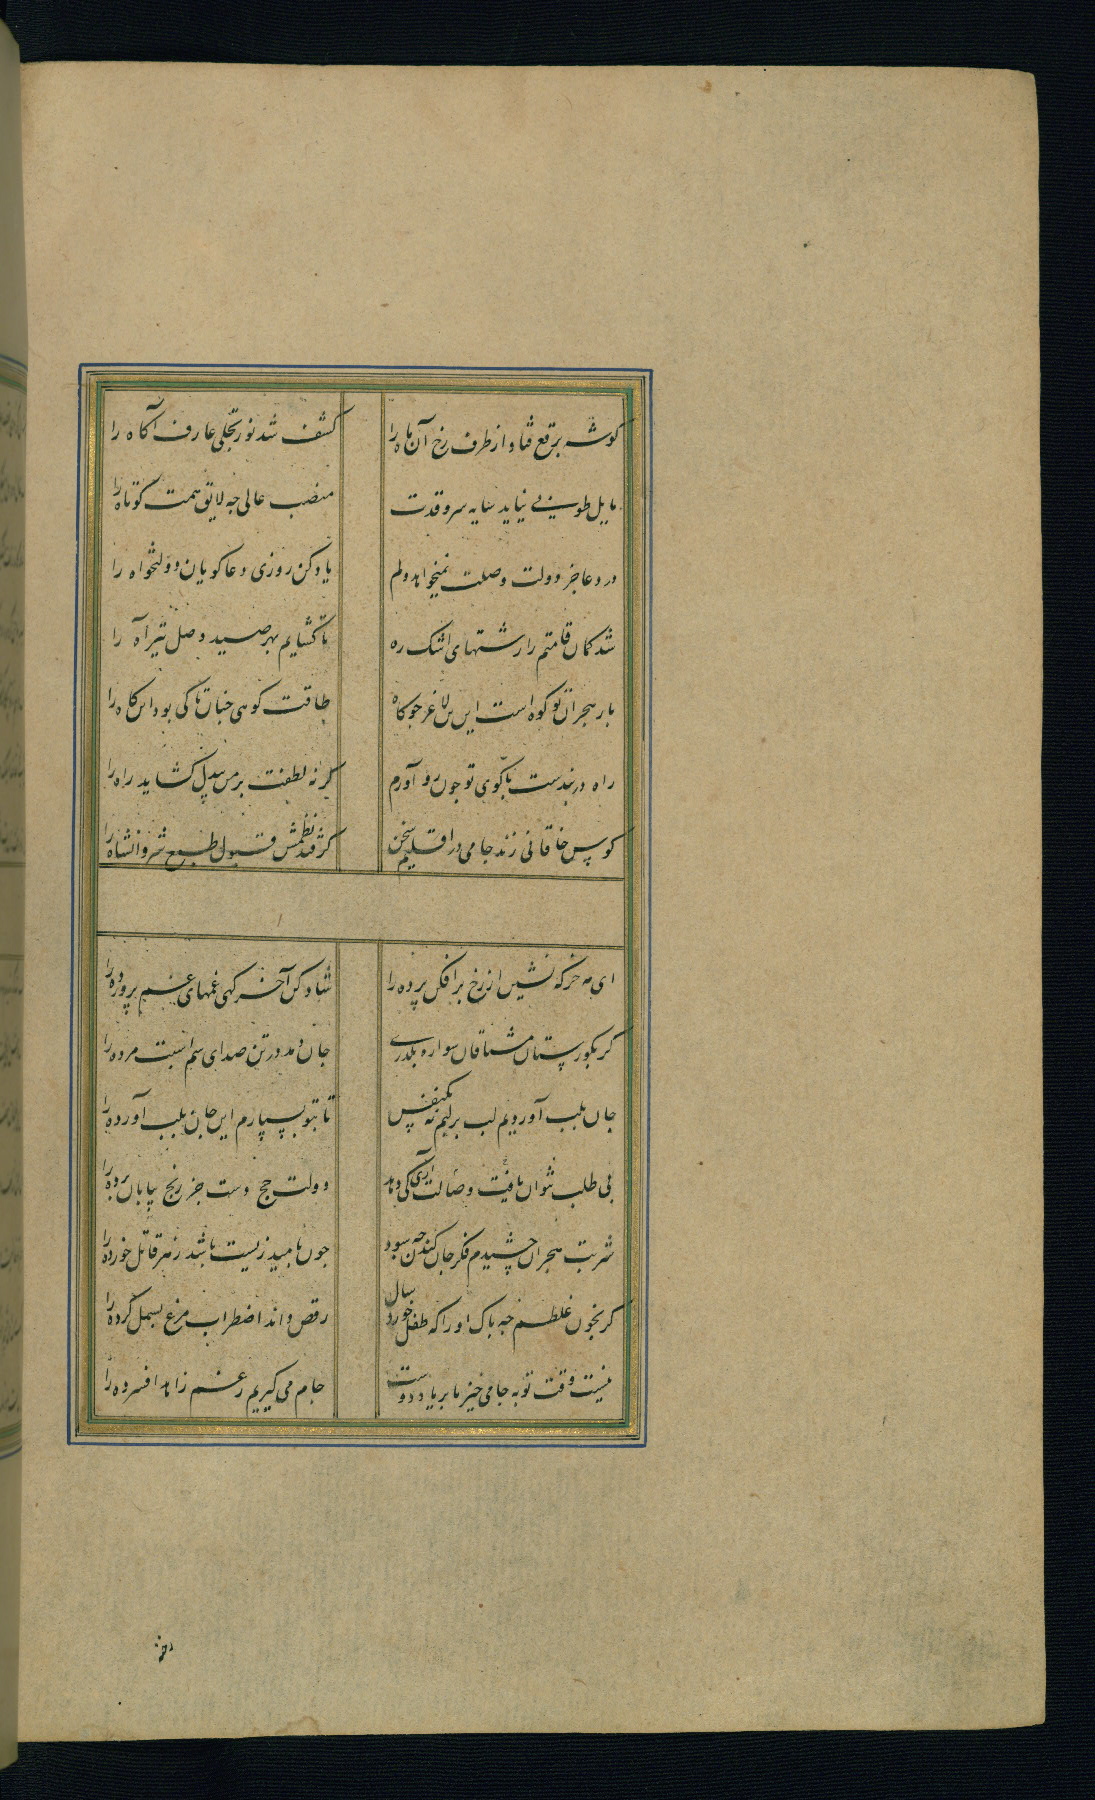 کوشه برقع فتاد از طرف رخ آن ماه را کشف شد نور تجلی عارف آکاه را
مایل طوبی نیاید سایه سرو قدت منصب عالی چه لایق همت کوتاه را
در دعا جز دولت وصلت نمیخواهد دلم یاد کن روزی دعاکویان دولتخواه را
شد کمان قامتم را رشتهای اشک ره تا کشایم بهر صید وصل تیر آه را
بار هجران تو کوه است این تن لاغر چو کاه طاقت کوهی چنان تا کی بود این کاه را
راه در بندست بکوی تو چون رو آورم کر نه لطفت بر من بیدل کشاید راه را
کوس خاقانی زند جامی در اقلیم سخن کر فتد نظمش قبول طبع شروانشاه را
ای مه خرکه نشین از رخ برافکن پرده را شاد کن آخر کهی غمهای غم پرورده را
کر بکورستان مشتاقان سواره بکذری جان دهد در تن صدای سم اسبت مرده را
جان بلب آوردیم لب بر لبم نه یکنفس تا بتو بسپارم این جان بلب آورده را
بی طلب نتوان یافت وصالت آری کی دهد دولت حج دست جز رنج بیابان برده را
شربت هجران چشیدم فکر جان کندن چه سود چون نا امید زیست باشد زهر قاتل خورده را
کر بخون غلطم چه باک او را که طفل خورد سال رقص داند اضطراب مرغ بسمل کرده را
نیست وقت توبه جامی خیز ما بر یاد دوست جام می کیریم رغم زاهد افسرده را